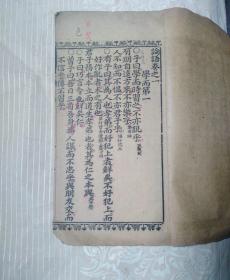 論語卷之一
學而第一
○子曰學而時習之不亦說乎
有朋自遠方來不亦樂乎
人不知而不慍不亦君子乎
○有子曰其為人也孝弟而好犯上者鮮矣不好犯上而
好作亂者未之有也
君子務本本立而道生孝弟也者其為仁之本與
○子曰巧言令色鮮矣仁
○曾子曰吾日三省吾身為人謀而不忠乎與朋友交而
不信乎傳不習乎